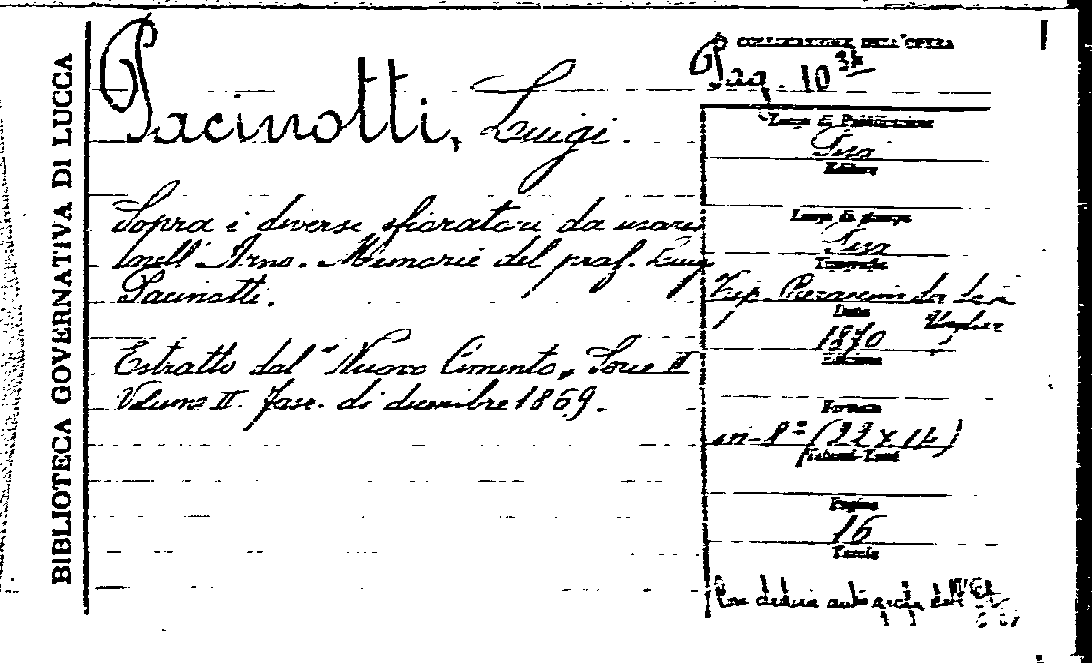 BIBLIOTECA GOVERNATIVA DI LUCCA
Pacinotti, Luigi.
Sopra i diversi sfioratori da usarsi
nell'Arno. Memorie del prof. Luigi
Pacinotti.
Estratto dal "Nuovo Cimento, Serie II
Volume II. Fasc. di dicembre 1869.
COLLOCAZIONE DELL'OPERA
1
Luogo di Pubblicazione
Pisa
Editore
Luogo di stampa
Pisa
Tipografia
Tip. Pieraccini
Data
1870
Edizione
Formato
in-8º (22 x 14)
Pagine
16
Tavole
Con dedica autografa dell'